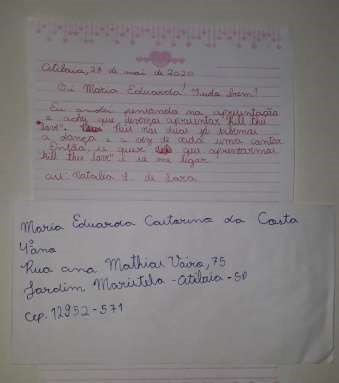 Atibaia, 28 de mai de 2020
Oi Maria Eduarda! Tudo bem?
Eu andei pensando na apresentação
e acho que devemos apresentar "kill this
love". Pois nós duas já sabemos
a dança e a vez de cada uma cantar.
Então, se quiser que apresentamos
"kill this love" é só me ligar.
ass: Natalia S. de Lara
Maria Eduarda Caitorina da Costa
4º ano
Rua ana Mathias Vairo, 75
Jardim Maristela - Atibaia - SP
Cep. 12952-571